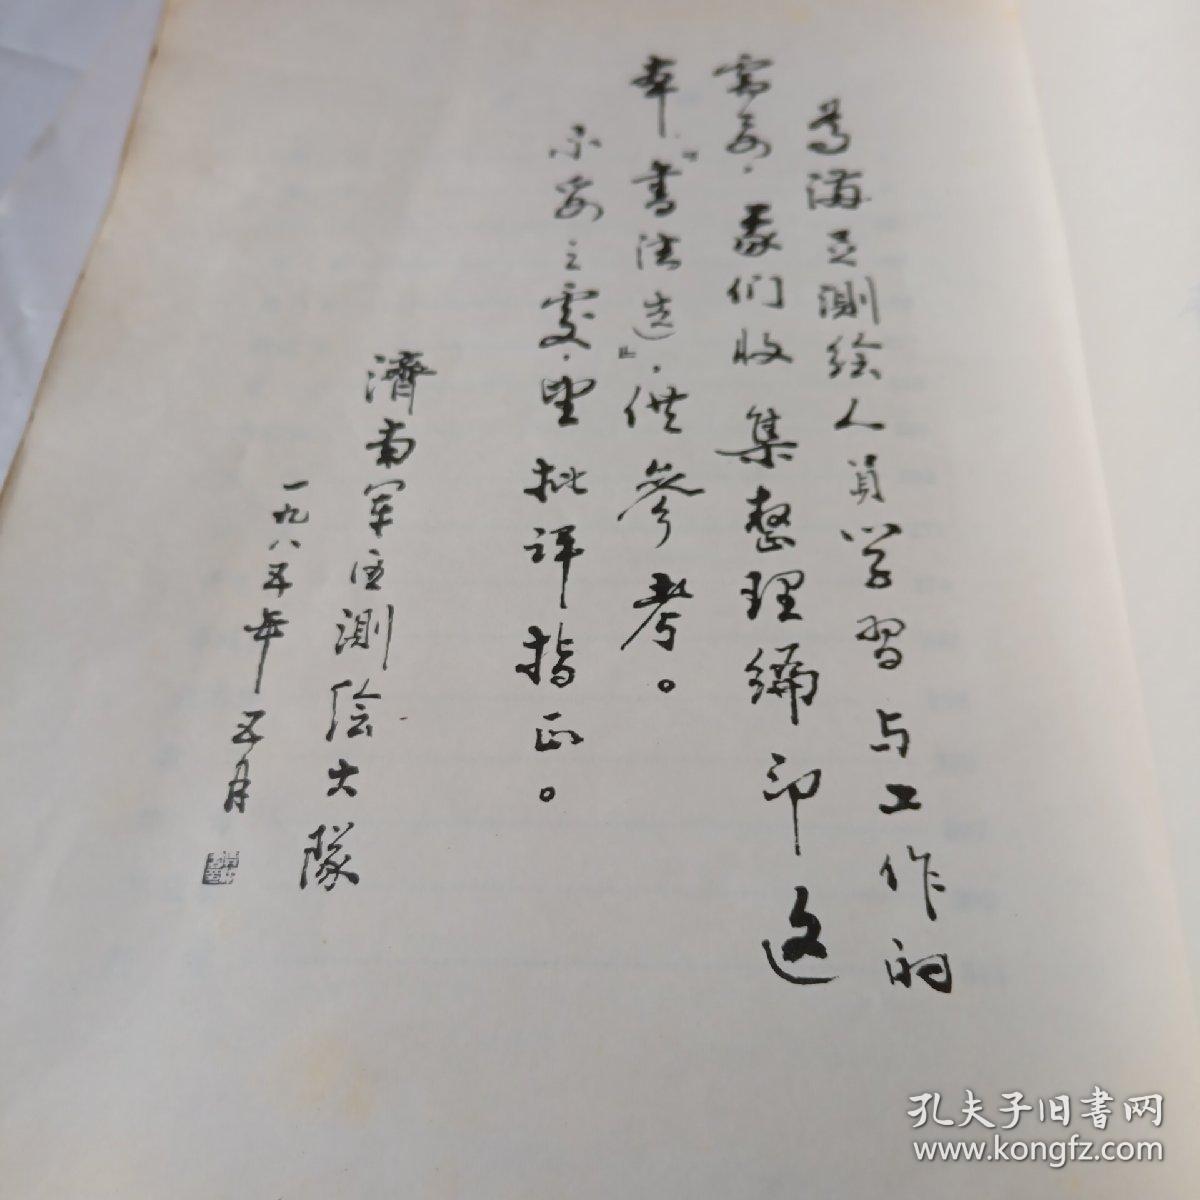 为满足测绘人员学习与工作的
需要，我们收集整理编印这
本“书法选”，供参考。
不妥之處，望批评指正。
濟南军区测绘大隊
一九八五年五月
孔夫子旧書网
www.kongfz.com